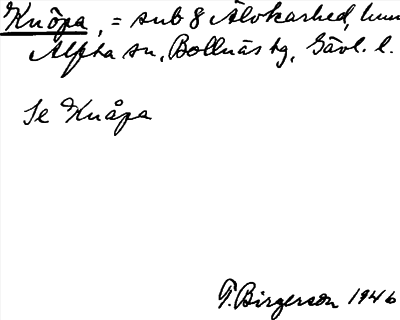 Knöpa, = sub 8 Älvkarhed, hem
Alfta sn, Bollnäs tg, Gävl. l.
Se Knåpa
T. Birgerson 1946